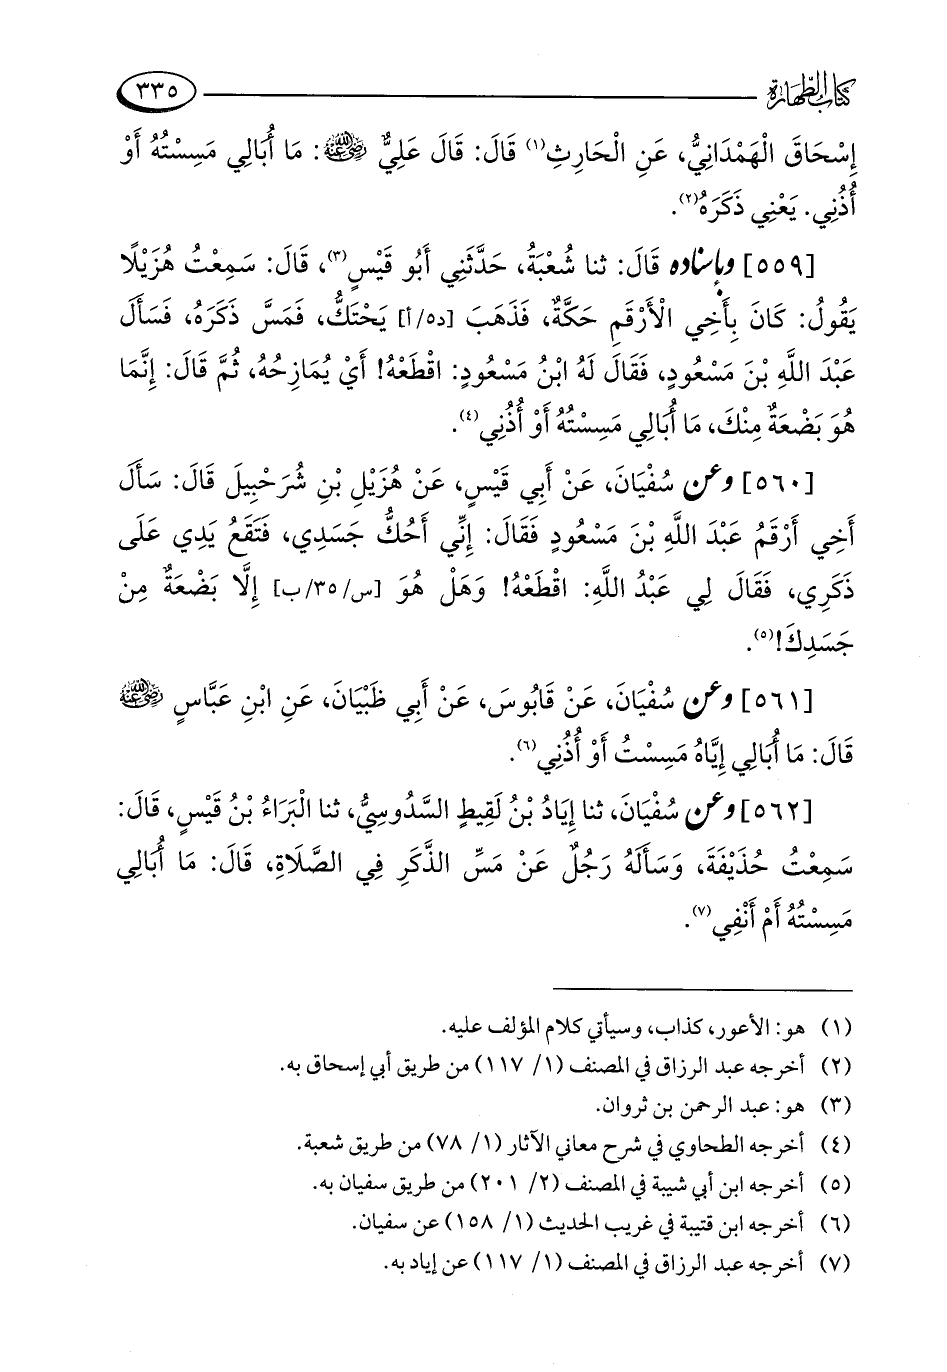 كتاب الطهارة ٣٣٥
إِسْحَاقَ الْهَمْدَانِيُّ، عَنِ الْحَارِثِ(١) قَالَ: قَالَ عَلِيٌّ رضي الله عنه: مَا أُبَالِي مَسِسْتُهُ أَوْ
أُذُنِي. يَعْنِي ذَكَرَهُ(٢).
[٥٥٩] وبإسناده قَالَ: ثنا شُعْبَةُ، حَدَّثَنِي أَبُو قَيْسٍ(٣)، قَالَ: سَمِعْتُ هُزَيْلًا
يَقُولُ: كَانَ بِأَخِي الْأَرْقَمِ حَكَّةٌ، فَذَهَبَ [د/٥/أ] يَحْتَكُّ، فَمَسَّ ذَكَرَهُ، فَسَأَلَ
عَبْدَ اللَّهِ بْنَ مَسْعُودٍ، فَقَالَ لَهُ ابْنُ مَسْعُودٍ: اقْطَعْهُ! أَيْ يُمَازِحُهُ، ثُمَّ قَالَ: إِنَّمَا
هُوَ بَضْعَةٌ مِنْكَ، مَا أُبَالِي مَسِسْتُهُ أَوْ أُذُنِي(٤).
[٥٦٠] وعن سُفْيَانَ، عَنْ أَبِي قَيْسٍ، عَنْ هُزَيْلِ بْنِ شُرَحْبِيلَ قَالَ: سَأَلَ
أَخِي أَرْقَمُ عَبْدَ اللَّهِ بْنَ مَسْعُودٍ فَقَالَ: إِنِّي أَحُكُّ جَسَدِي، فَتَقَعُ يَدِي عَلَى
ذَكَرِي، فَقَالَ لِي عَبْدُ اللَّهِ: اقْطَعْهُ! وَهَلْ هُوَ [س/٣٥/ب] إِلَّا بَضْعَةٌ مِنْ
جَسَدِكَ!(٥).
[٥٦١] وعن سُفْيَانَ، عَنْ قَابُوسَ، عَنْ أَبِي ظَبْيَانَ، عَنِ ابْنِ عَبَّاسٍ رضي الله عنه
قَالَ: مَا أُبَالِي إِيَّاهُ مَسِسْتُ أَوْ أُذُنِي(٦).
[٥٦٢] وعن سُفْيَانَ، ثنا إِيَادُ بْنُ لَقِيطٍ السَّدُوسِيُّ، ثنا الْبَرَاءُ بْنُ قَيْسٍ، قَالَ:
سَمِعْتُ حُذَيْفَةَ، وَسَأَلَهُ رَجُلٌ عَنْ مَسِّ الذَّكَرِ فِي الصَّلَاةِ، قَالَ: مَا أُبَالِي
مَسِسْتُهُ أَمْ أَنْفِي(٧).
(١) هو: الأعور، كذاب، وسيأتي كلام المؤلف عليه.
(٢) أخرجه عبد الرزاق في المصنف (١/ ١١٧) من طريق أبي إسحاق به.
(٣) هو: عبد الرحمن بن ثروان.
(٤) أخرجه الطحاوي في شرح معاني الآثار (١/ ٧٨) من طريق شعبة.
(٥) أخرجه ابن أبي شيبة في المصنف (٢/ ٢٠١) من طريق سفيان به.
(٦) أخرجه ابن قتيبة في غريب الحديث (١/ ١٥٨) عن سفيان.
(٧) أخرجه عبد الرزاق في المصنف (١/ ١١٧) عن إياد به.